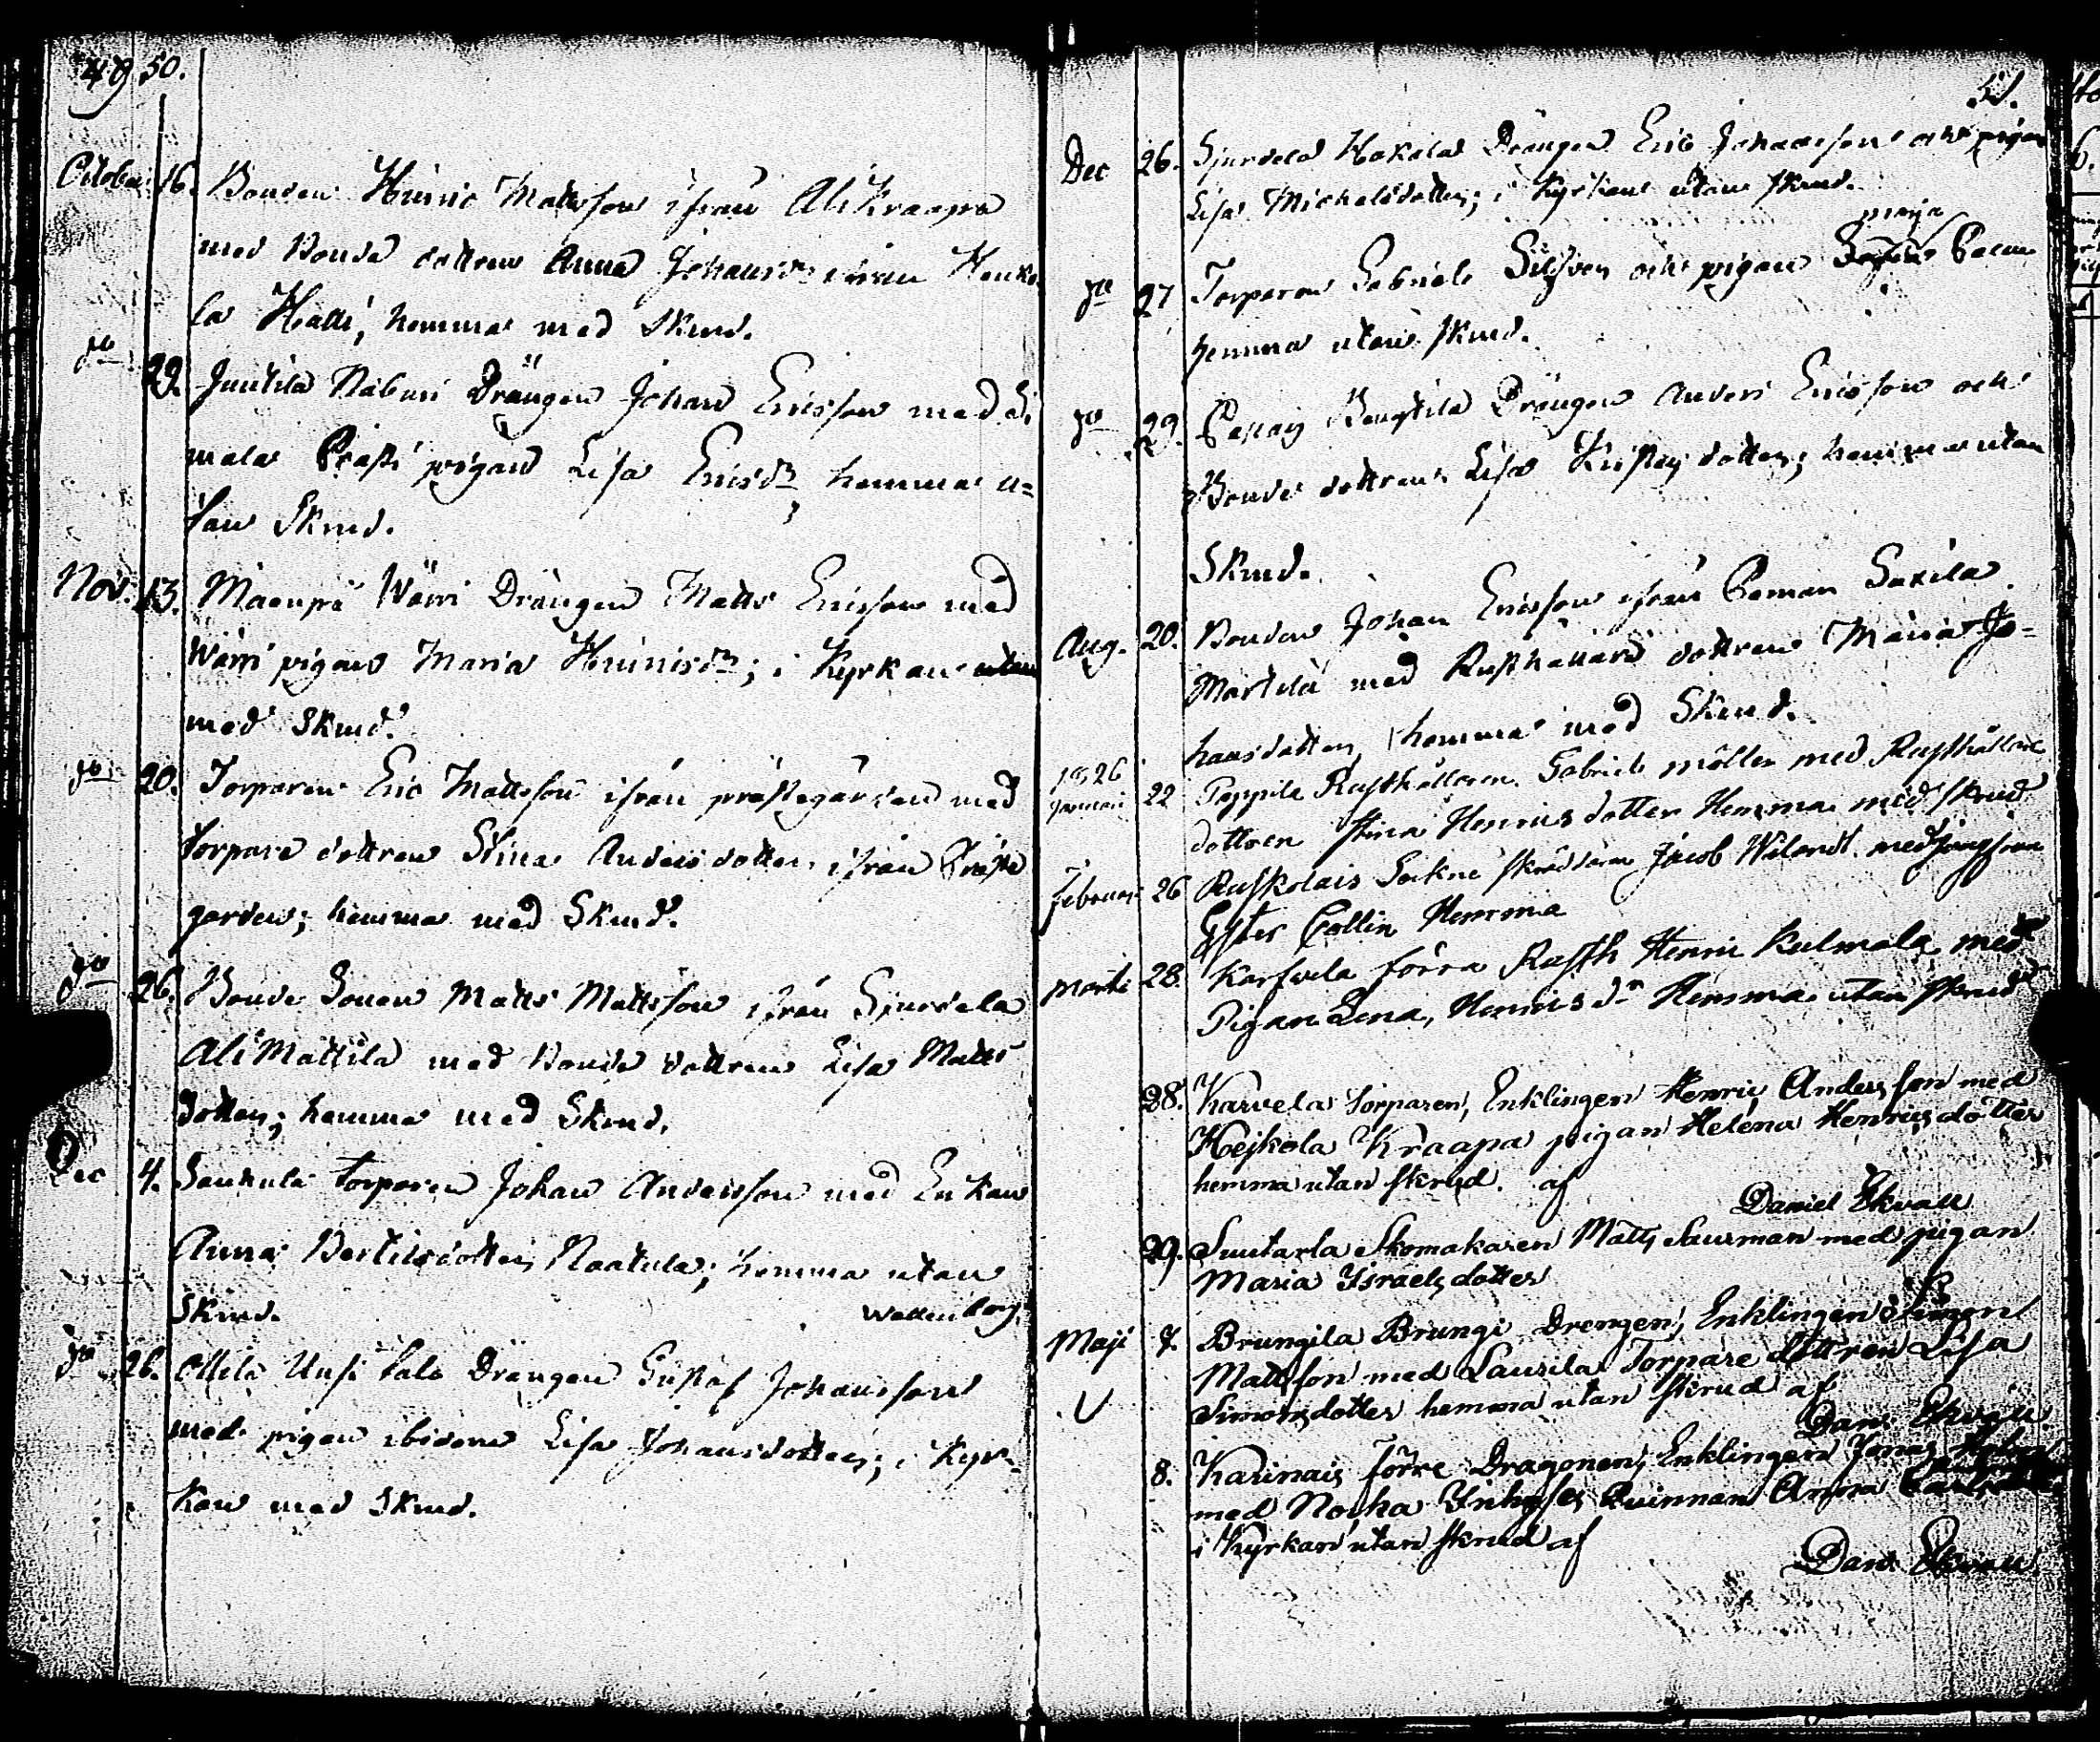 49 50.
October 16. Bonden Henric Mattsson ifrån Ali Kraapa
med Bonde dottren Anna Johansdr ifrån Henki
la Hatti; hemma med Skrud.
do 29. Juutila Naburi Drängen Johan Ericsson med Si
mala Prästi pigan Lisa Ericsdr, hemma u=
tan Skrud.
Nov. 13. Maenpä Wärri Drängen Matts Ericsson med
Wärri pigan Maria Henricsdr; i Kyrkan
med Skrud.
do 20. Torparen Eric Mattsson ifrån prästegården med
torpare dottren Stina Anders dotter ifrån Präste
garden; hemma med Skrud.
do 26. Bonde Sonen Matts Mattsson ifrån Sjurdela
Ali Mattila med Bonde dottren Lisa Matts
dotter; hemma med Skrud.
Dec 4. Torparen Johan Andersson med Enkan
Anna Bertilsdotter Naatula; hemma utan
Skrud.
Wallenborg.
do 26. Ollila Uusi talo Drängen Gustaf Johansson
med pigan ibidem Lisa Johansdotter; i Kyr=
kan med Skrud.
51.
Dec 26. Sjurdela Kokala Drängen Eric Johansson och pigan
Lisa Michelsdotter; i Kyrkan utan skrud.
maja
do 27 Torparen Gabriel Silfver och pigan
hemma utan skrud.
do 29. Bengtila Drängen Anders Ericsson och
Bonde dottren Lisa dotter; hemma utan
Skrud.
Aug. 20. Bonden Johan Ericsson ifrån Saxila
Martila med Rusthållars dottren Maria Jo=
hansdotter, hemma med Skrud.
1826
Januari 22 Poppila Rusthållaren Gabriel möller med Rusthållare
dottren Stina Henrics dotter Hemma med skrud
Februari 26 Ruskolais Sockne skräddaren Jacob Wilandt med Jungfrun
Ester Collin Hemma
Marti 28. Karfvela förra Rusth Henric Kulmala med
Pigan Lena, Henricsdr Hemma utan skrud
28. Karvela torparen, Enklingen Henric Andersson med
Hejkola Kraapa pigan Helena Henricsdotter
hemma utan skrud. af
Daniel Ekvall
29. Suutarla Skomakaren Matts Saurman med pigan
Maria Ysraelsdotter
Maji 7. Brungila Brungi Drengen, Enklingen Simon
Mattsson med Laurila Torpare dottren Lisa
Simonsdotter hemma utan skrud af
Dan. Ekvall
8. Karinais förre Dragonen, Enklingen Jonas
med Noska Ynhyses Quinnan Anna
i Kyrkan utan skrud af
Dan. Ekvall